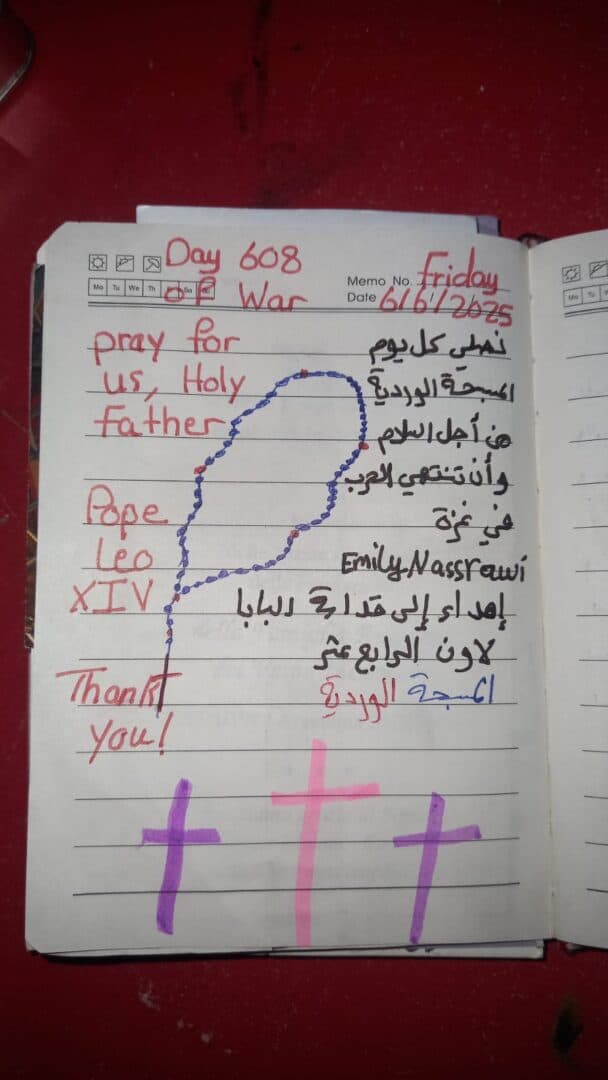 Day 608
of War
Memo No. Friday
Date 6/6/2025
Mo Tu We Th Sa
pray for
us, Holy
Father
Pope
Leo
XIV
Thank
you!
نصلي كل يوم
المسبحة الوردية
من أجل السلام
وأن تنتهي الحرب
في غزة
Emily Nassrawi
إهداء إلى قداسة البابا
لاون الرابع عشر
المسبحة الوردية